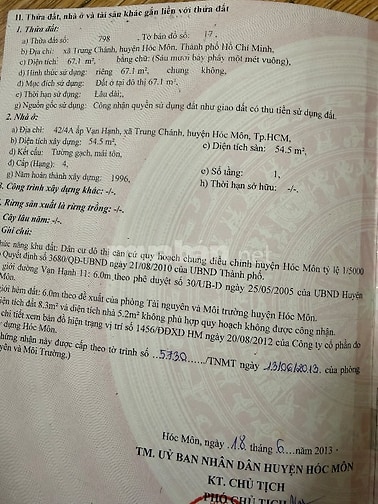 II. Thửa đất, nhà ở và tài sản khác gắn liền với thửa đất
1. Thửa đất:
a) Thửa đất số: 798 Tờ bản đồ số: 17,
b) Địa chỉ: xã Trung Chánh, huyện Hóc Môn, Thành phố Hồ Chí Minh,
c) Diện tích: 67.1 m², bằng chữ: (Sáu mươi bảy phẩy một mét vuông),
d) Hình thức sử dụng: riêng 67.1 m², chung không,
đ) Mục đích sử dụng: Đất ở tại đô thị 67.1 m²,
e) Thời hạn sử dụng: Lâu dài;,
g) Nguồn gốc sử dụng: Công nhận quyền sử dụng đất như giao đất có thu tiền sử dụng đất.
2. Nhà ở:
a) Địa chỉ: 42/4A ấp Vạn Hạnh, xã Trung Chánh, huyện Hóc Môn, Tp.HCM,
b) Diện tích xây dựng: 54.5 m², c) Diện tích sàn: 54.5 m²,
d) Kết cấu: Tường gạch, mái tôn,
đ) Cấp (Hạng): 4, e) Số tầng: 1,
g) Năm hoàn thành xây dựng: 1996, h) Thời hạn sở hữu: -/-.
3. Công trình xây dựng khác: -/-.
Rừng sản xuất là rừng trồng: -/-.
Cây lâu năm: -/-.
Ghi chú:
hức năng khu đất: Dân cư đô thị căn cứ quy hoạch chung điều chỉnh huyện Hóc Môn tỷ lệ 1/5000
Quyết định số 3680/QĐ-UBND ngày 21/08/2010 của UBND Thành phố.
giới đường Vạn Hạnh 11: 6.0m theo phê duyệt số 30/UB-D ngày 25/05/2005 của UBND Huyện
Môn.
giới hẻm đất: 6.0m theo đề xuất của phòng Tài nguyên và Môi trường huyện Hóc Môn.
iện tích đất 8.3m² và diện tích nhà 5.2m² không phù hợp quy hoạch không được công nhận.
chi tiết xem bản đồ hiện trạng vị trí số 1456/ĐDXD HM ngày 20/08/2012 của Công ty cổ phần đo
dựng Hóc Môn.
hứng nhận này được cấp theo tờ trình số ...5730....../TNMT ngày 13/06/2013. của phòng
yên và Môi Trường.)
Hóc Môn, ngày 18 tháng 6 ....năm 2013
TM. UỶ BAN NHÂN DÂN HUYỆN HÓC MÔN
KT. CHỦ TỊCH
PHÓ CHỦ TỊCH